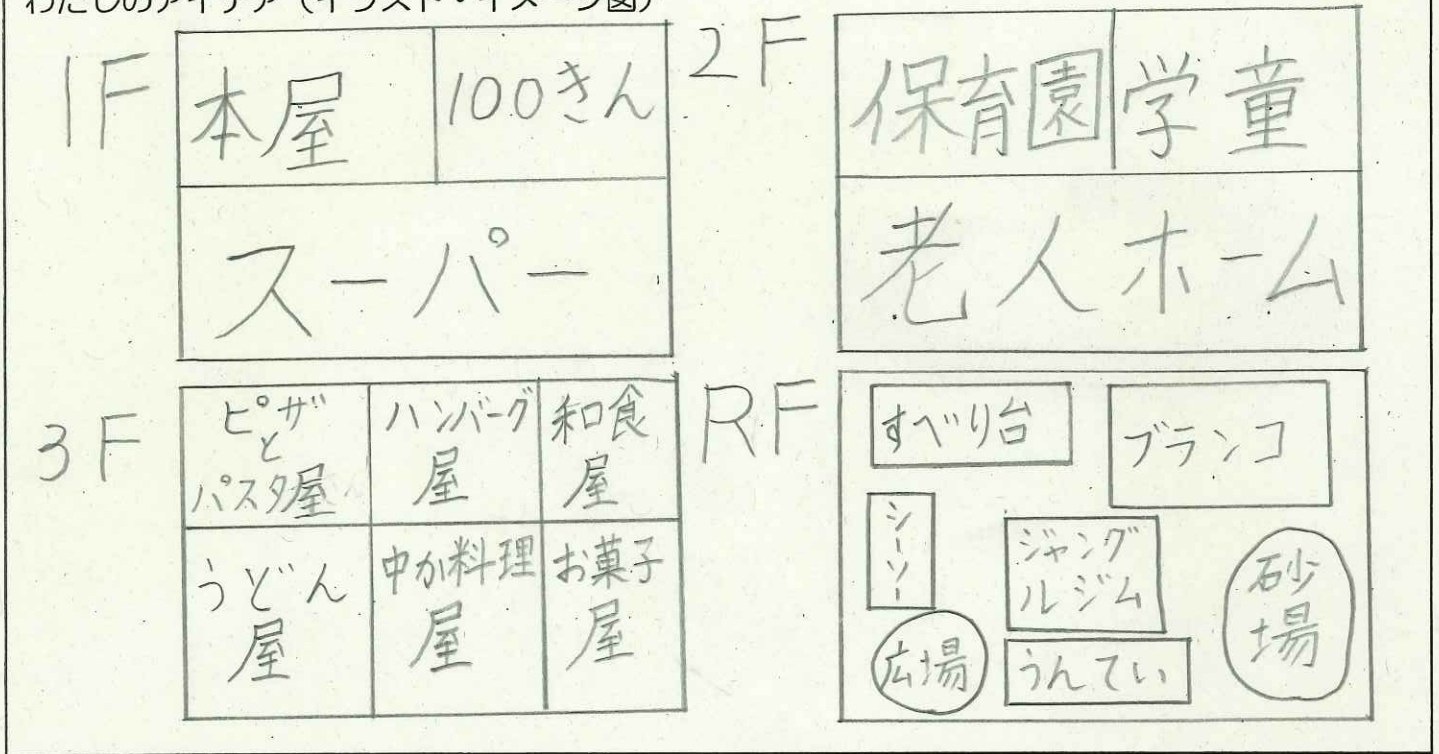 わたしのアイデア（イラスト・イメージ図）
1F
本屋
100きん
スーパー
2F
保育園
学童
老人ホーム
3F
ピザ
と
パスタ屋
ハンバーグ
屋
和食
屋
うどん
屋
中か料理
屋
お菓子
屋
RF
すべり台
ブランコ
シーソー
ジャング
ルジム
砂
場
広場
うんてい